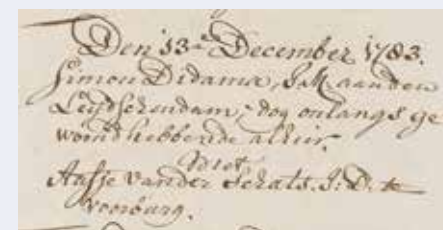 Den 13e December 1783.
Simon Didama, J.M. aan den
Leydschendam, dog onlangs ge
woond hebbende alhier.
Met
Aafje van der Schals. J: D. te
Voorburg.